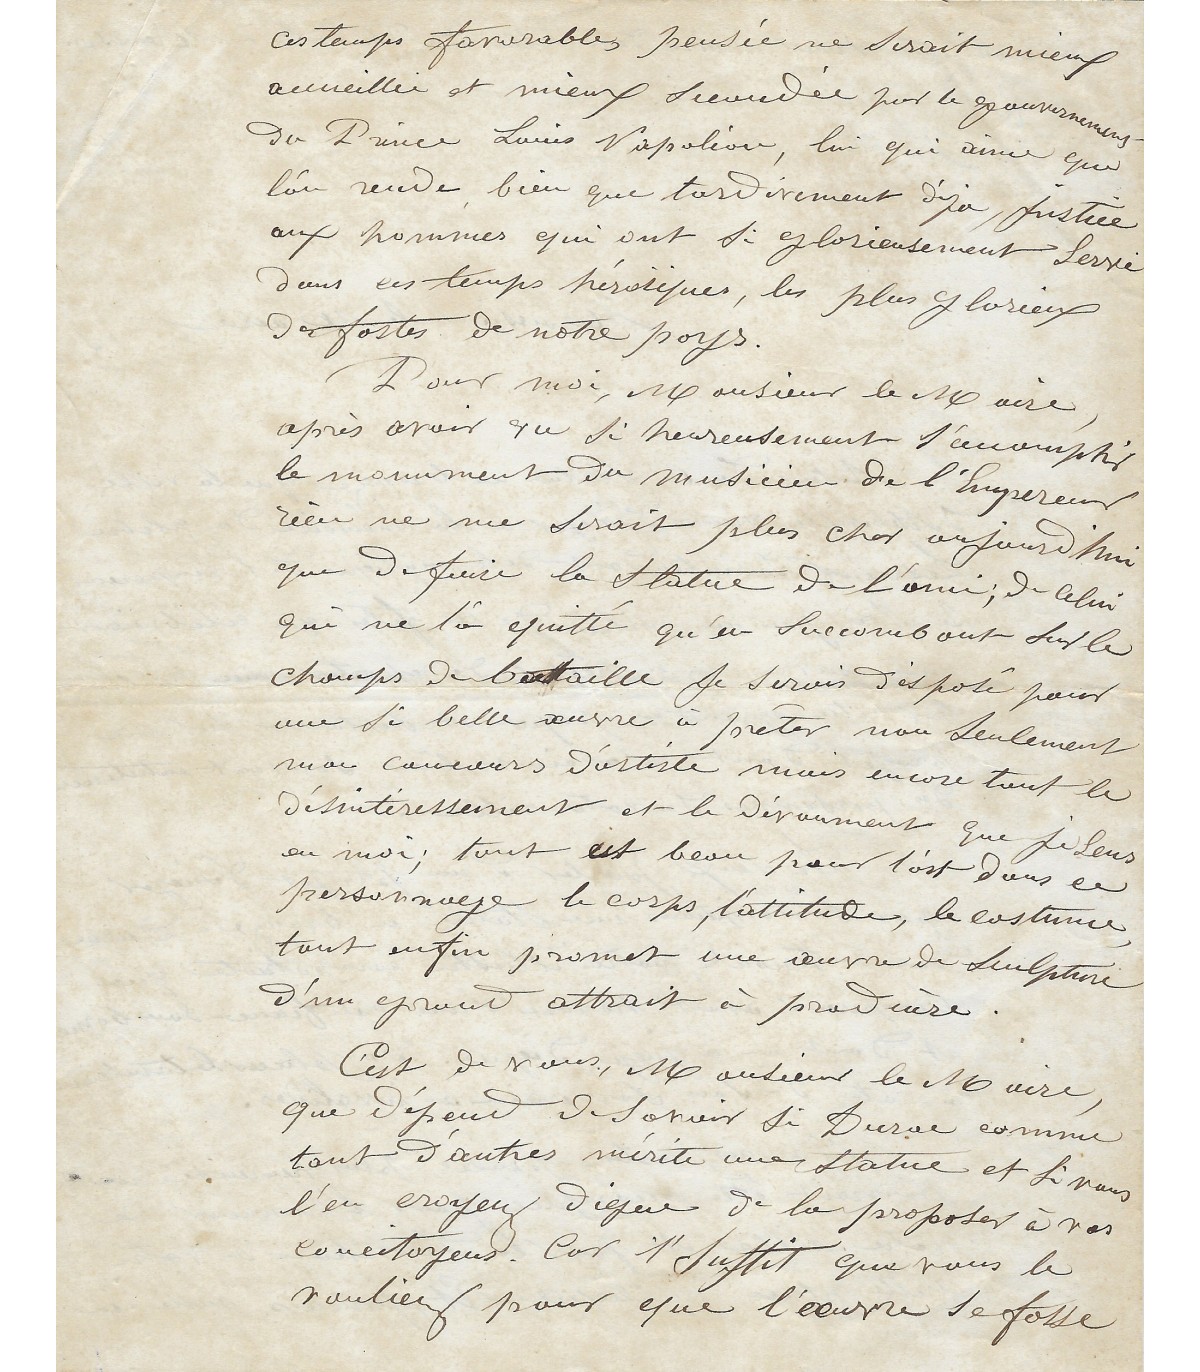 ces temps favorables pensée ne serait mieux
accueillie et mieux secondée par le gouvernement
du Prince Louis Napoléon, lui qui aime que
l'on rende, bien que tardivement déja, justice
aux hommes qui ont si glorieusement servi
dans ces temps héröiques, les plus glorieux
des fastes de notre pays.
Pour moi, Monsieur le Maire,
après avoir vu si heureusement s'accomplir
le monument du musicien de l'Empereur
rien ne me serait plus cher aujourd'hui
que de faire la statue de l'ami; de celui
qui ne l'a quitté qu'en succombant sur le
champs de bataille je serais disposé pour
une si belle œuvre à prêter non seulement
mon concours d'artiste mais encore tout le
désintéressement et le dévoument que je sens
en moi; tout est beau pour l'art dans ce
personnage le corps, l'attitude, le costume,
tout enfin promet une œuvre de sculpture
d'un grand attrait à produire.
C'est de vous, Monsieur le Maire,
que dépend de savoir si Duroc comme
tant d'autres mérite une statue et si vous
l'en croyez digne de la proposer à vos
concitoyens. Car il suffit que vous le
vouliez pour que l'œuvre se fasse